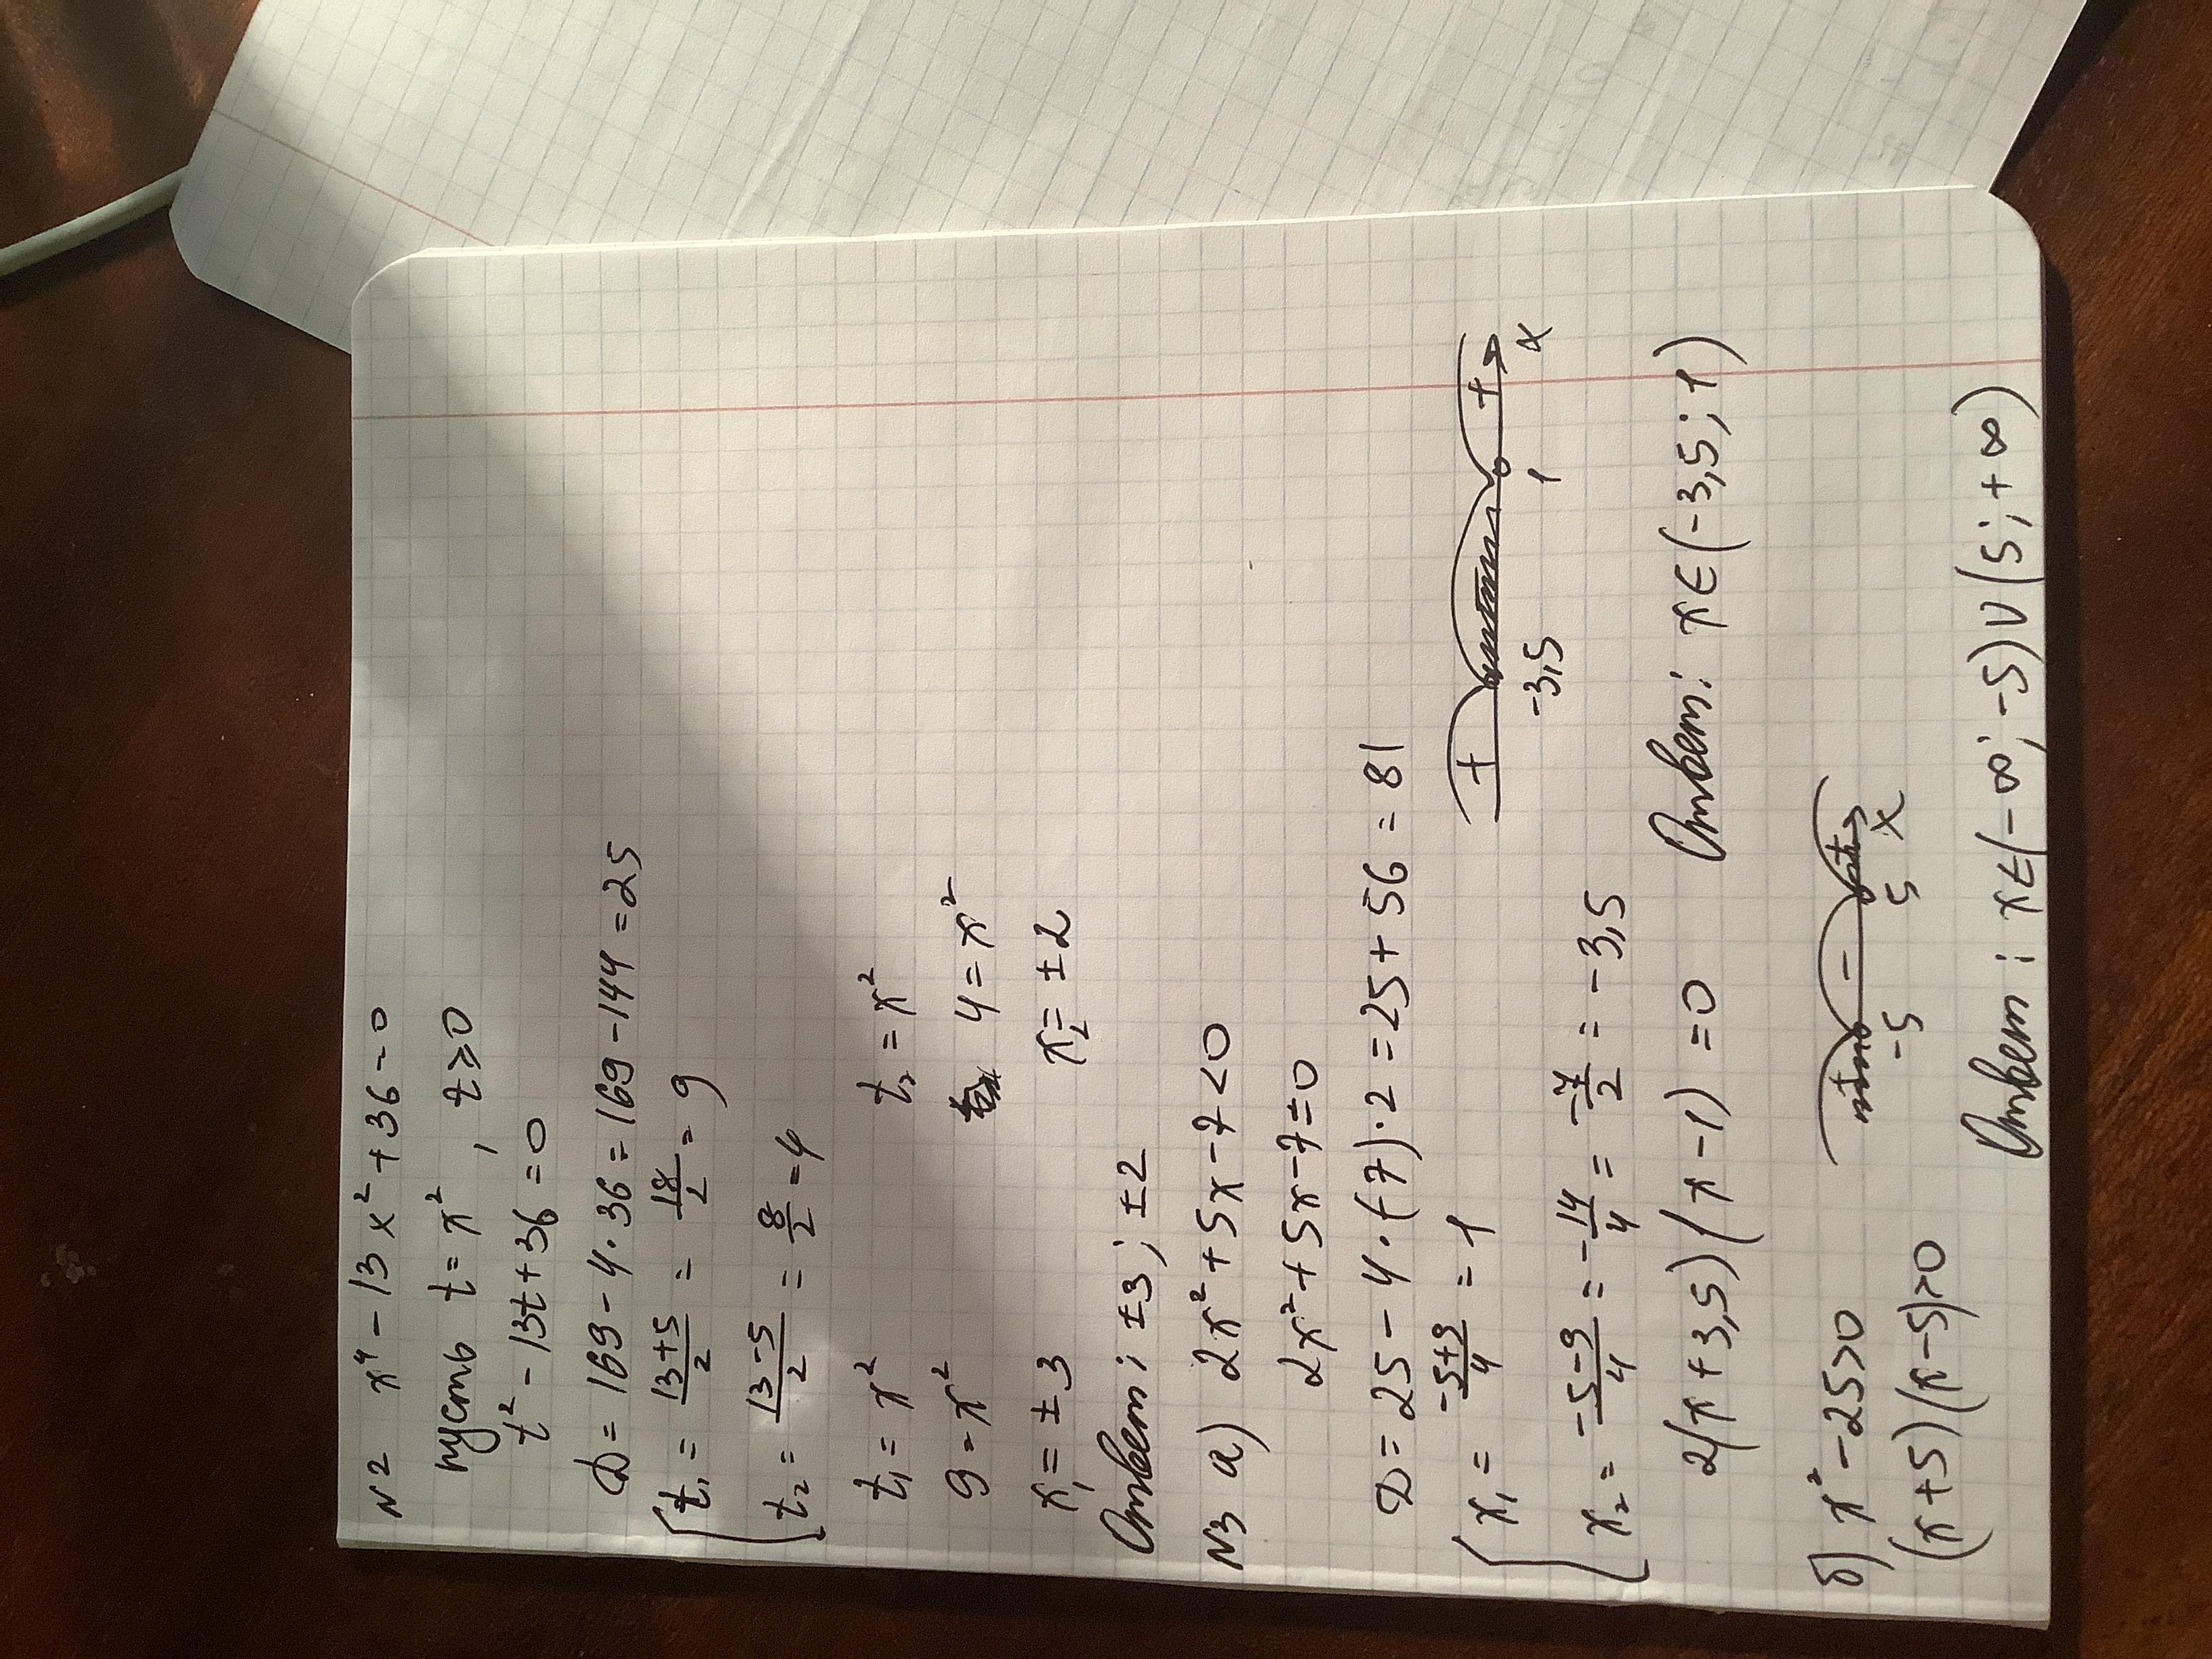 N2 x⁴ - 13x² + 36 = 0
пусть t = x², t ≥ 0
t² - 13t + 36 = 0
D = 169 - 4·36 = 169 - 144 = 25
[t₁ = (13+5)/2 = 18/2 = 9
[t₂ = (13-5)/2 = 8/2 = 4
t₁ = x² t₂ = x²
9 = x² 4 = x²
x₁ = ±3 x₂ = ±2
Ответ: ±3; ±2
N3 а) 2x² + 5x - 7 < 0
2x² + 5x - 7 = 0
D = 25 - 4·(-7)·2 = 25 + 56 = 81
[x₁ = (-5+9)/4 = 1
+ - + 
-3,5 1 x
[x₂ = (-5-9)/4 = -14/4 = -7/2 = -3,5
2(x + 3,5)(x - 1) = 0 Ответ: x∈(-3,5; 1)
б) x² - 25 > 0
+ - +
-5 5 x
(x+5)(x-5)>0
Ответ: x∈(-∞; -5)∪(5; +∞)